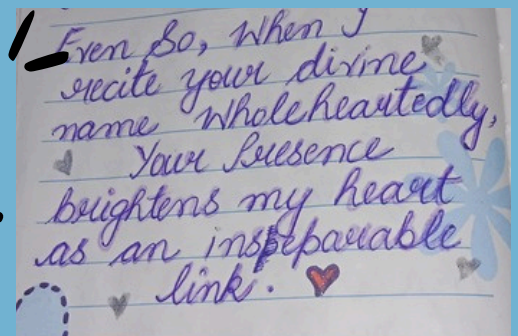 Even So, When I
recite your divine
name Wholeheartedly,
Your Presence
brightens my heart
as an inseparable
link.